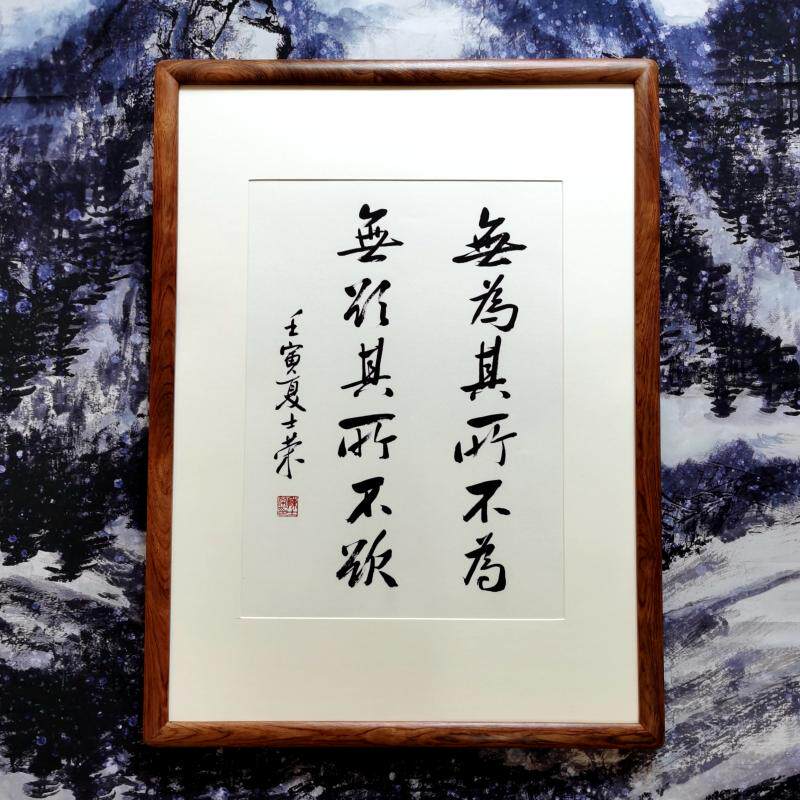 無為其所不為
無欲其所不欲
壬寅夏士荣